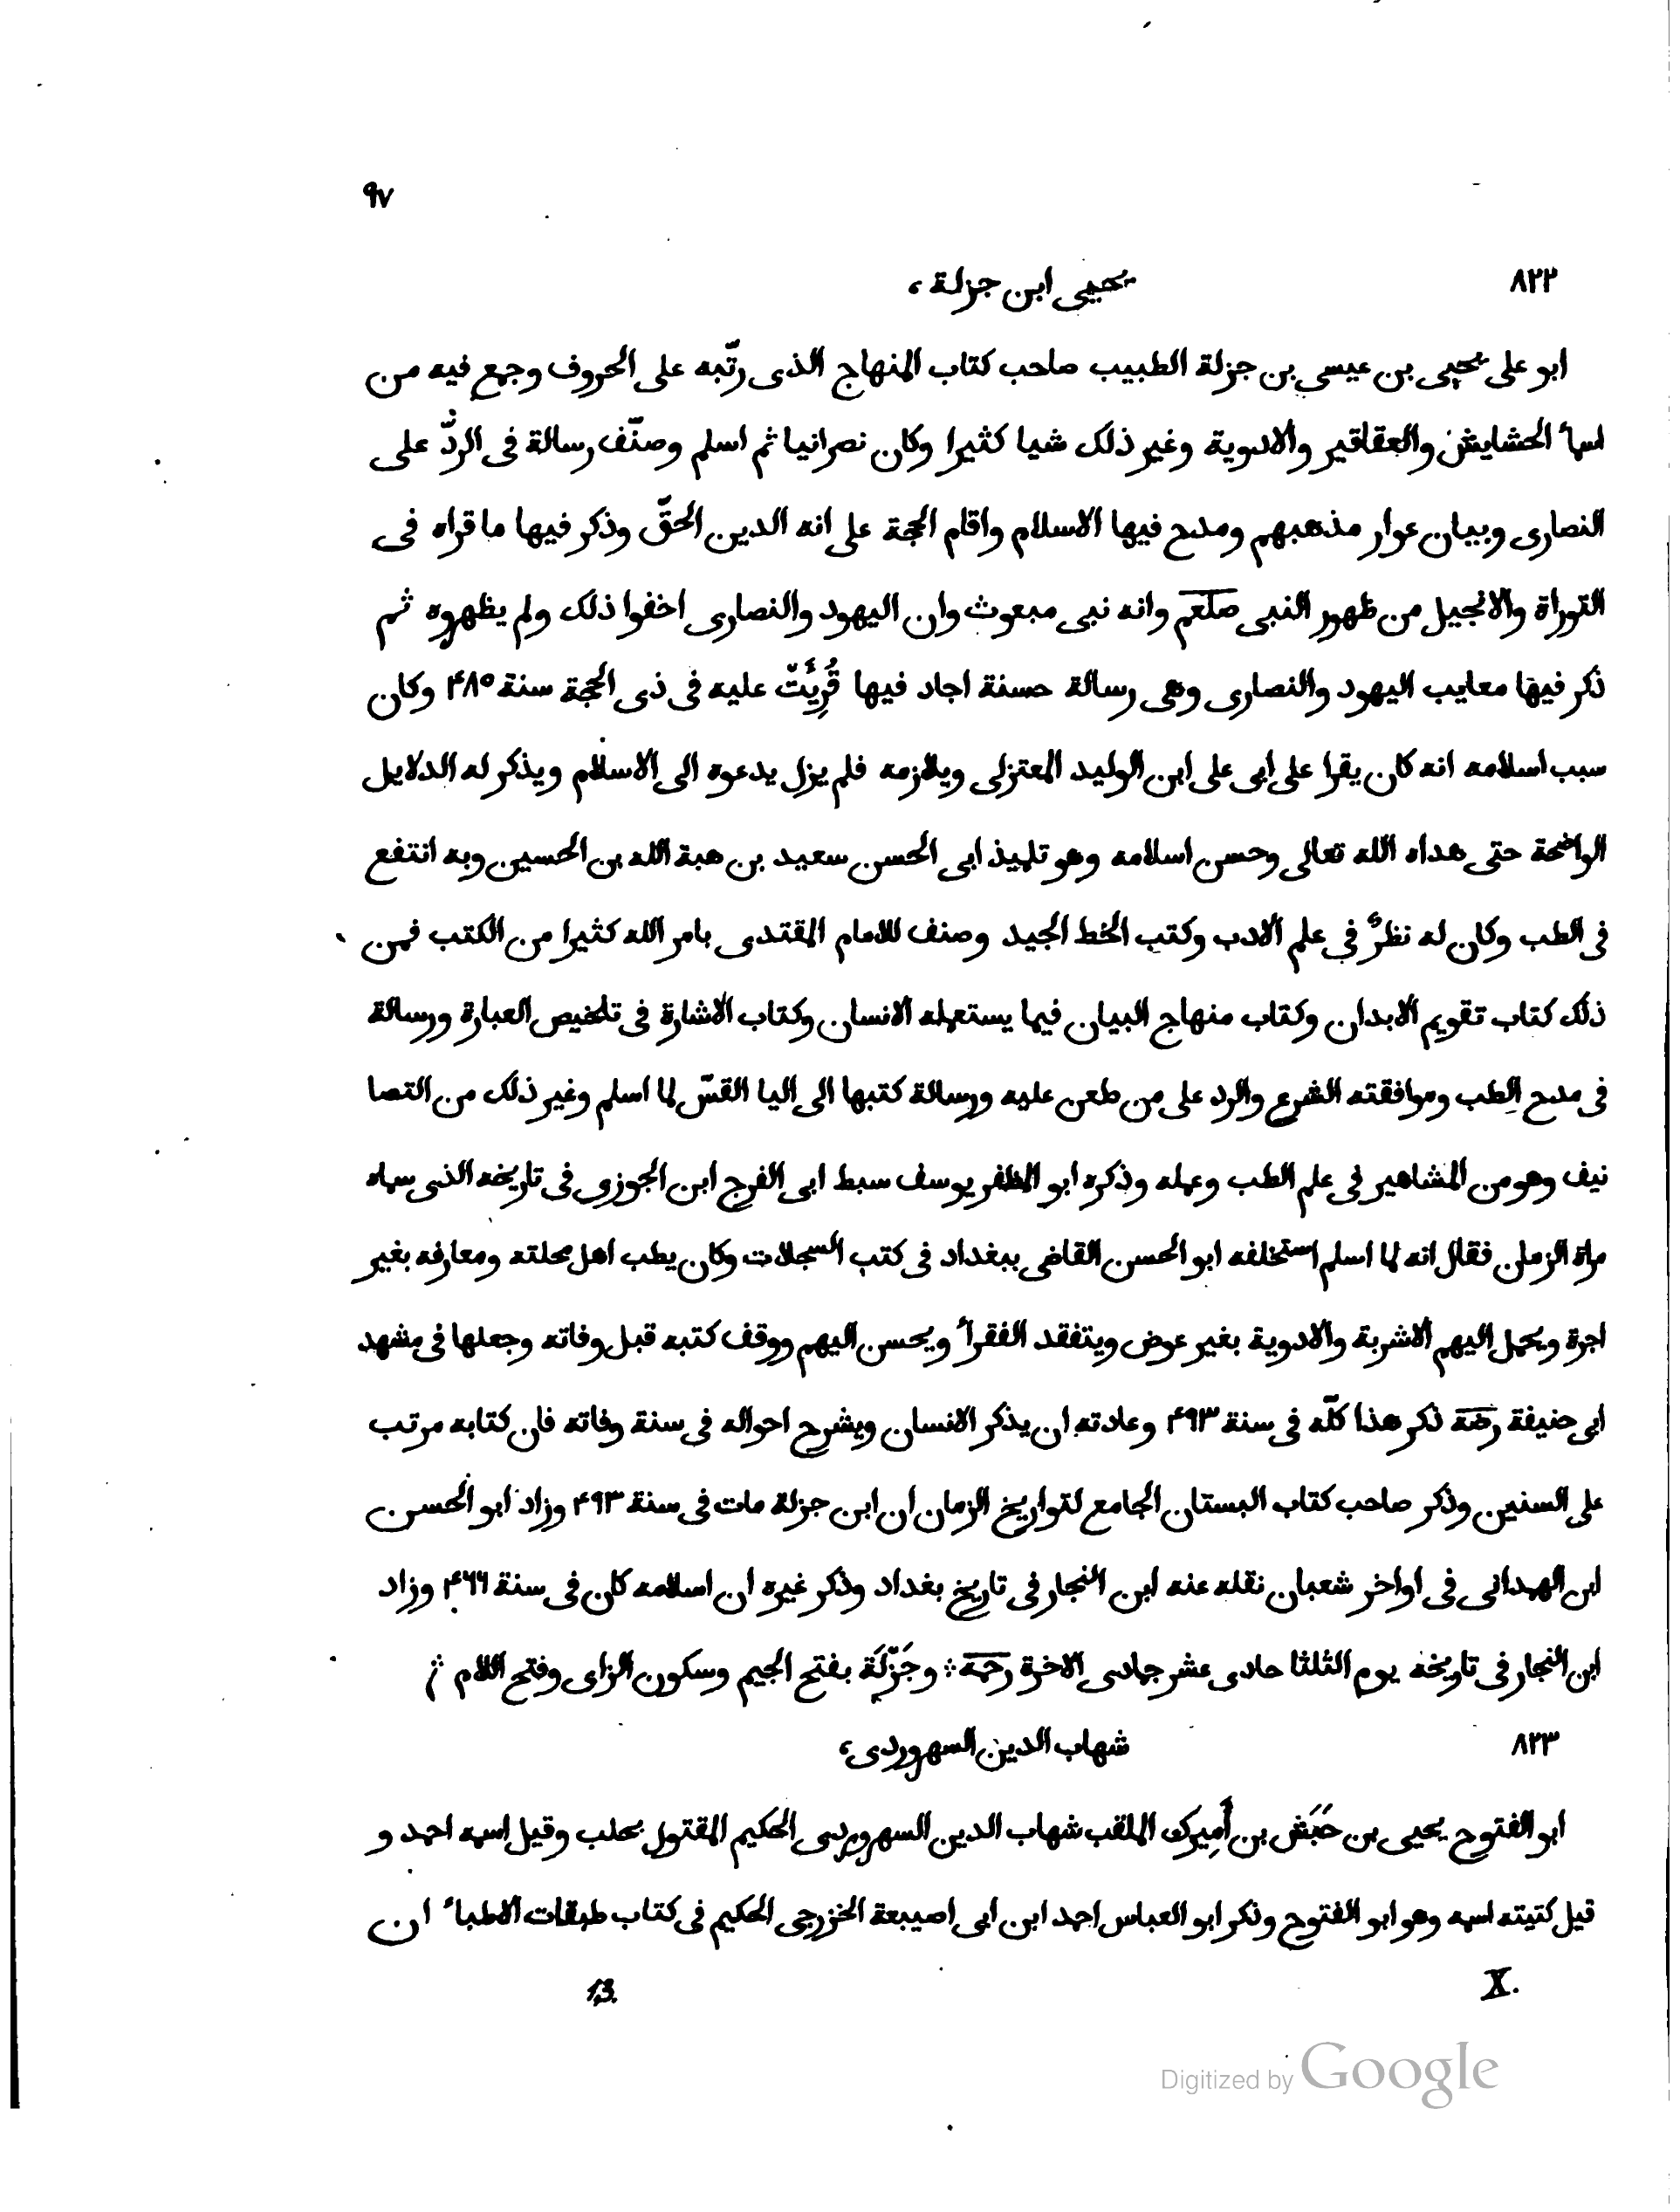 ٩٧
٨٢٢ يحيى ابن جزلة،
ابو على يحيى بن عيسى بن جزلة الطبيب صاحب كتاب المنهاج الذى رتّبه على الحروف وجمع فيه من
اسمآ الحشايش والعقاقير والادوية وغير ذلك شيا كثيرا وكان نصرانيا ثم اسلم وصنّف رسالة فى الردّ على
النصارى وبيان عوار مذهبهم ومدح فيها الاسلام واقام الحجة على انه الدين الحقّ وذكر فيها ما قراه فى
التوراة والانجيل من ظهور النبى صلعم وانه نبى مبعوث وان اليهود والنصارى اخفوا ذلك ولم يظهروه ثم
ذكر فيها معايب اليهود والنصارى وهى رسالة حسنة اجاد فيها قُرِئَتْ عليه فى ذى الحجة سنة ۴٨٥ وكان
سبب اسلامه انه كان يقرا على ابى على ابن الوليد المعتزلى ويلازمه فلم يزل يدعوه الى الاسلام ويذكر له الدلايل
الواضحة حتى هداه الله تعالى وحسن اسلامه وهو تلميذ ابى الحسن سعيد بن هبة الله بن الحسين وبه انتفع
فى الطب وكان له نظرٌ فى علم الادب وكتب الخط الجيد وصنف للامام المقتدى بامر الله كثيرا من الكتب فمن
ذلك كتاب تقويم الابدان وكتاب منهاج البيان فيما يستعمله الانسان وكتاب الاشارة فى تلخيص العبارة ورسالة
فى مدح الطب وموافقته الشرع والرد على من طعن عليه ورسالة كتبها الى اليا القسّ لما اسلم وغير ذلك من التصا
نيف وهو من المشاهير فى علم الطب وعمله وذكره ابو المظفر يوسف سبط ابى الفرج ابن الجوزى فى تاريخه الذى سماه
مراة الزمان فقال انه لما اسلم استخلفه ابو الحسن القاضى ببغداد فى كتب السجلات وكان يطب اهل محلته ومعارفه بغير
اجرة ويحمل اليهم الاشربة والادوية بغير عوض ويتفقد الفقرآ ويحسن اليهم ووقف كتبه قبل وفاته وجعلها فى مشهد
ابى حنيفة رضه ذكر هذا كلّه فى سنة ۴٩٣ وعادته ان يذكر الانسان ويشرح احواله فى سنة وفاته فان كتابه مرتب
على السنين وذكر صاحب كتاب البستان الجامع لتواريخ الزمان ان ابن جزلة مات فى سنة ۴٩٣ وزاد ابو الحسن
ابن الهمدانى فى اواخر شعبان نقله عنه ابن النجار فى تاريخ بغداد وذكر غيره ان اسلامه كان فى سنة ۴٦٦ وزاد
ابن النجار فى تاريخه يوم الثلثا حادى عشر جمادى الاخرة رحمه ؞ وجَزْلَة بفتح الجيم وسكون الزاى وفتح اللام ؞
٨٢٣ شهاب الدين السهروردى،
ابو الفتوح يحيى بن حَبَش بن أَمِيرك الملقب شهاب الدين السهروردى الحكيم المقتول بحلب وقيل اسمه احمد و
قيل كتيته اسمه وهو ابو الفتوح وذكر ابو العباس احمد ابن ابى اصيبعة الخزرجى الحكيم فى كتاب طبقات الاطبآ ان
X. 13.
Digitized by Google